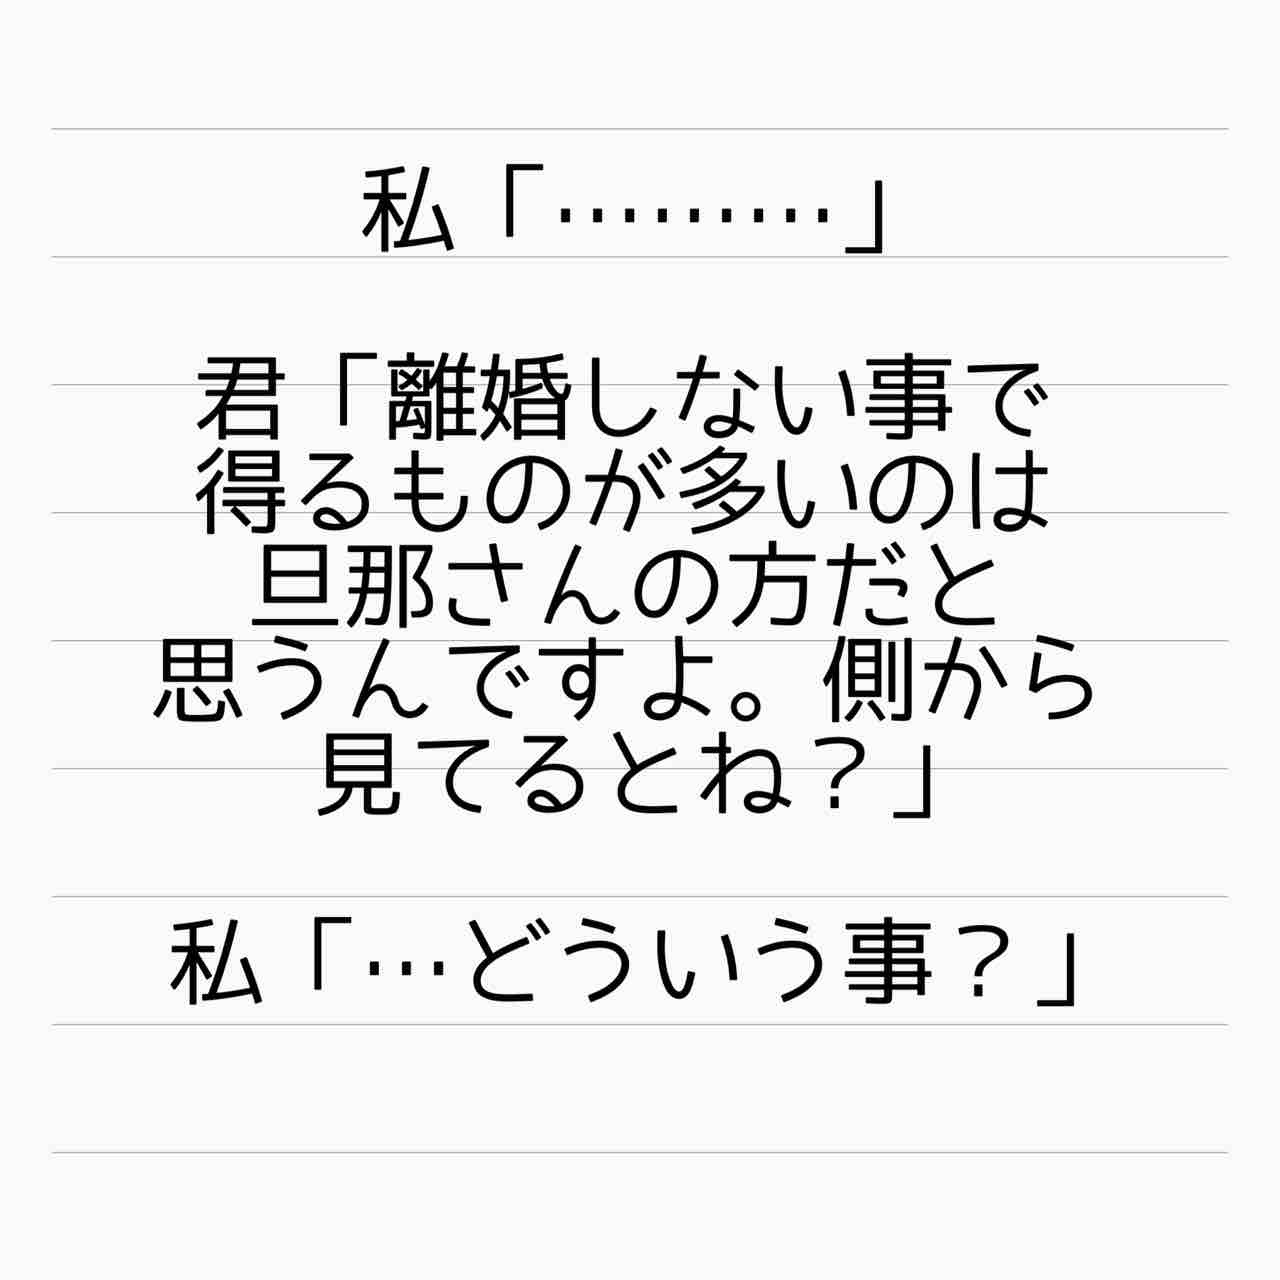 私「………」
君「離婚しない事で
得るものが多いのは
旦那さんの方だと
思うんですよ。側から
見てるとね？」
私「…どういう事？」